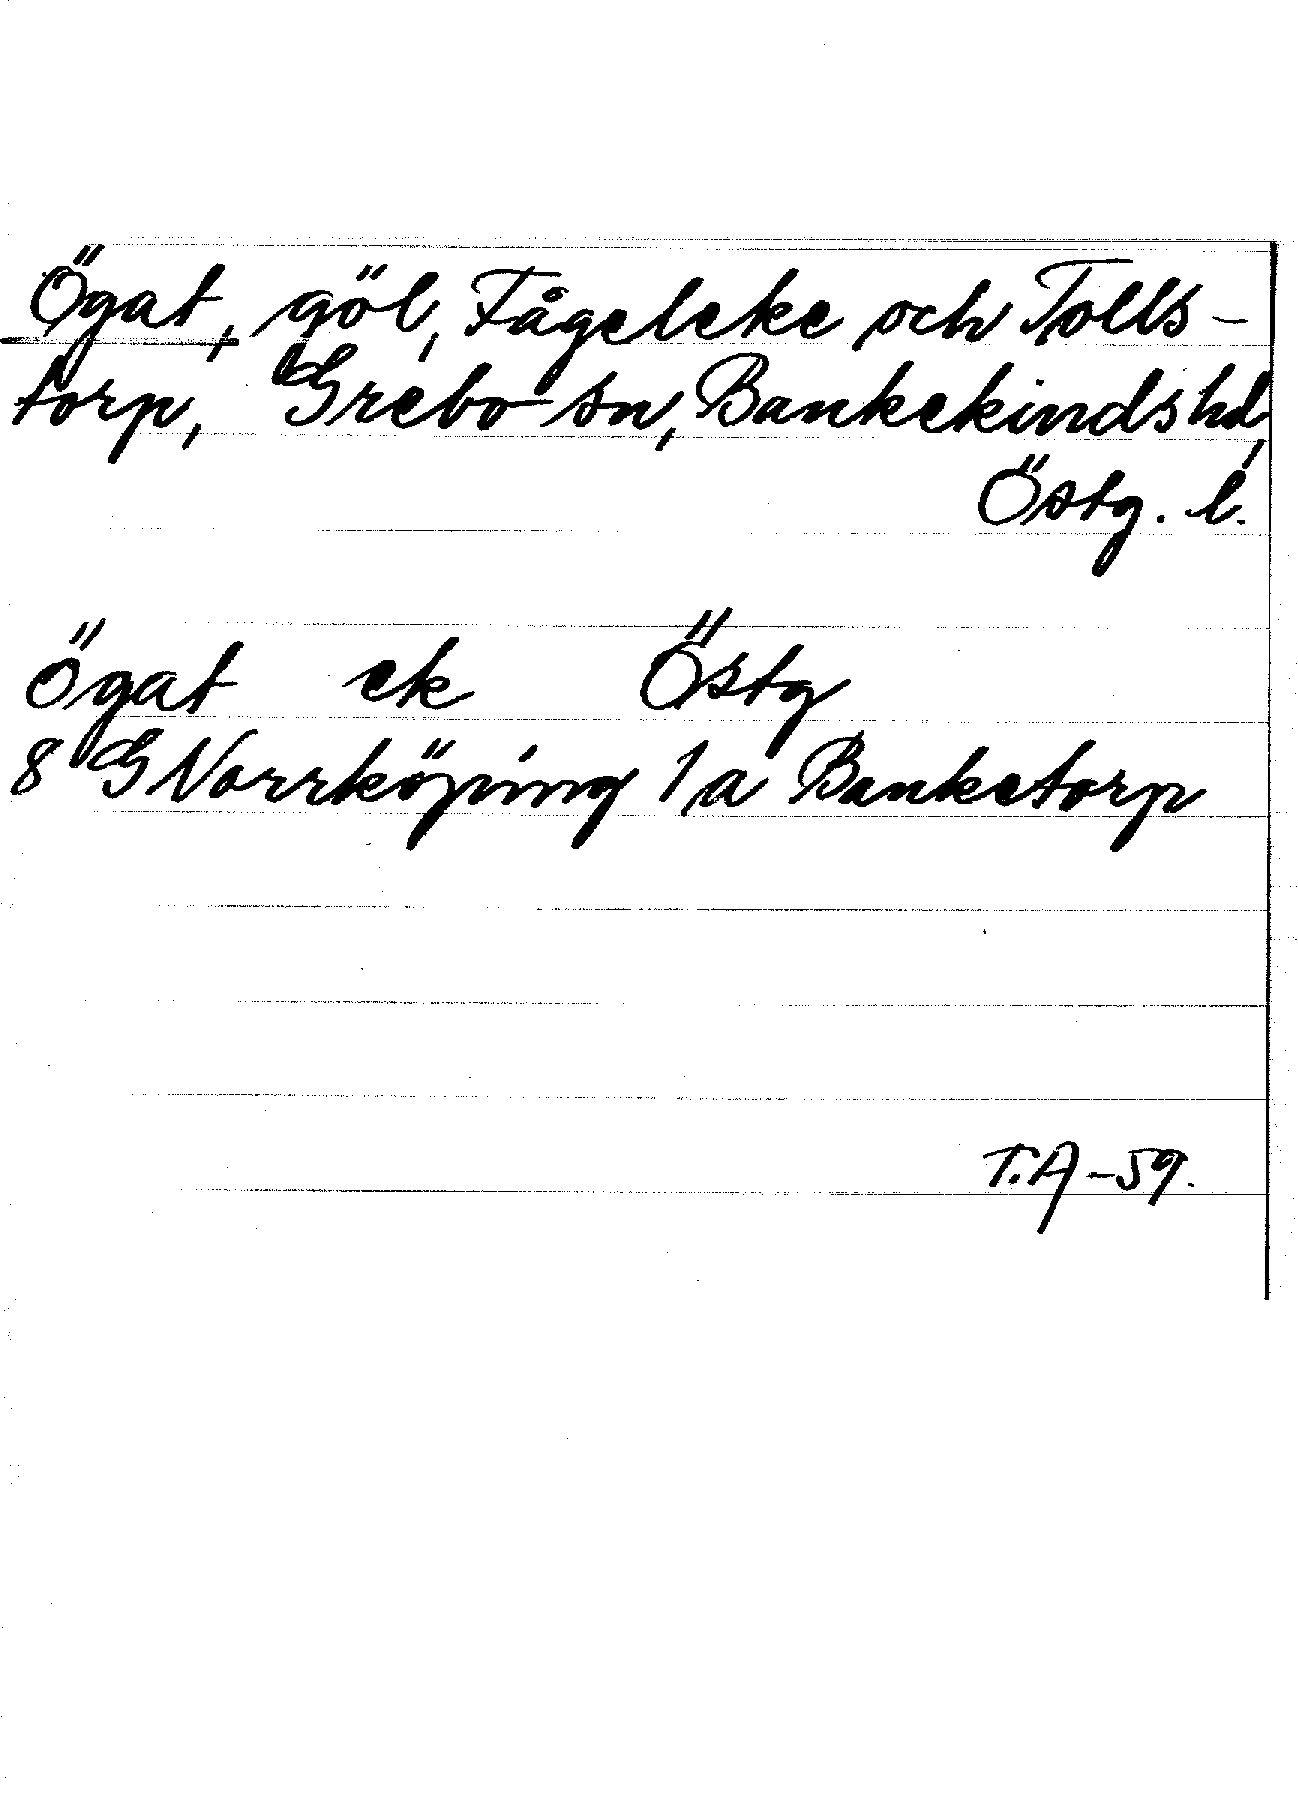 Ögat, göl, Fågeleke och Tolls-
torp, Grebo sn, Bankekinds hd,
Östg. l.
Ögat ek Östg
8 G Norrköping 1 a Banketorp
T.A -59.